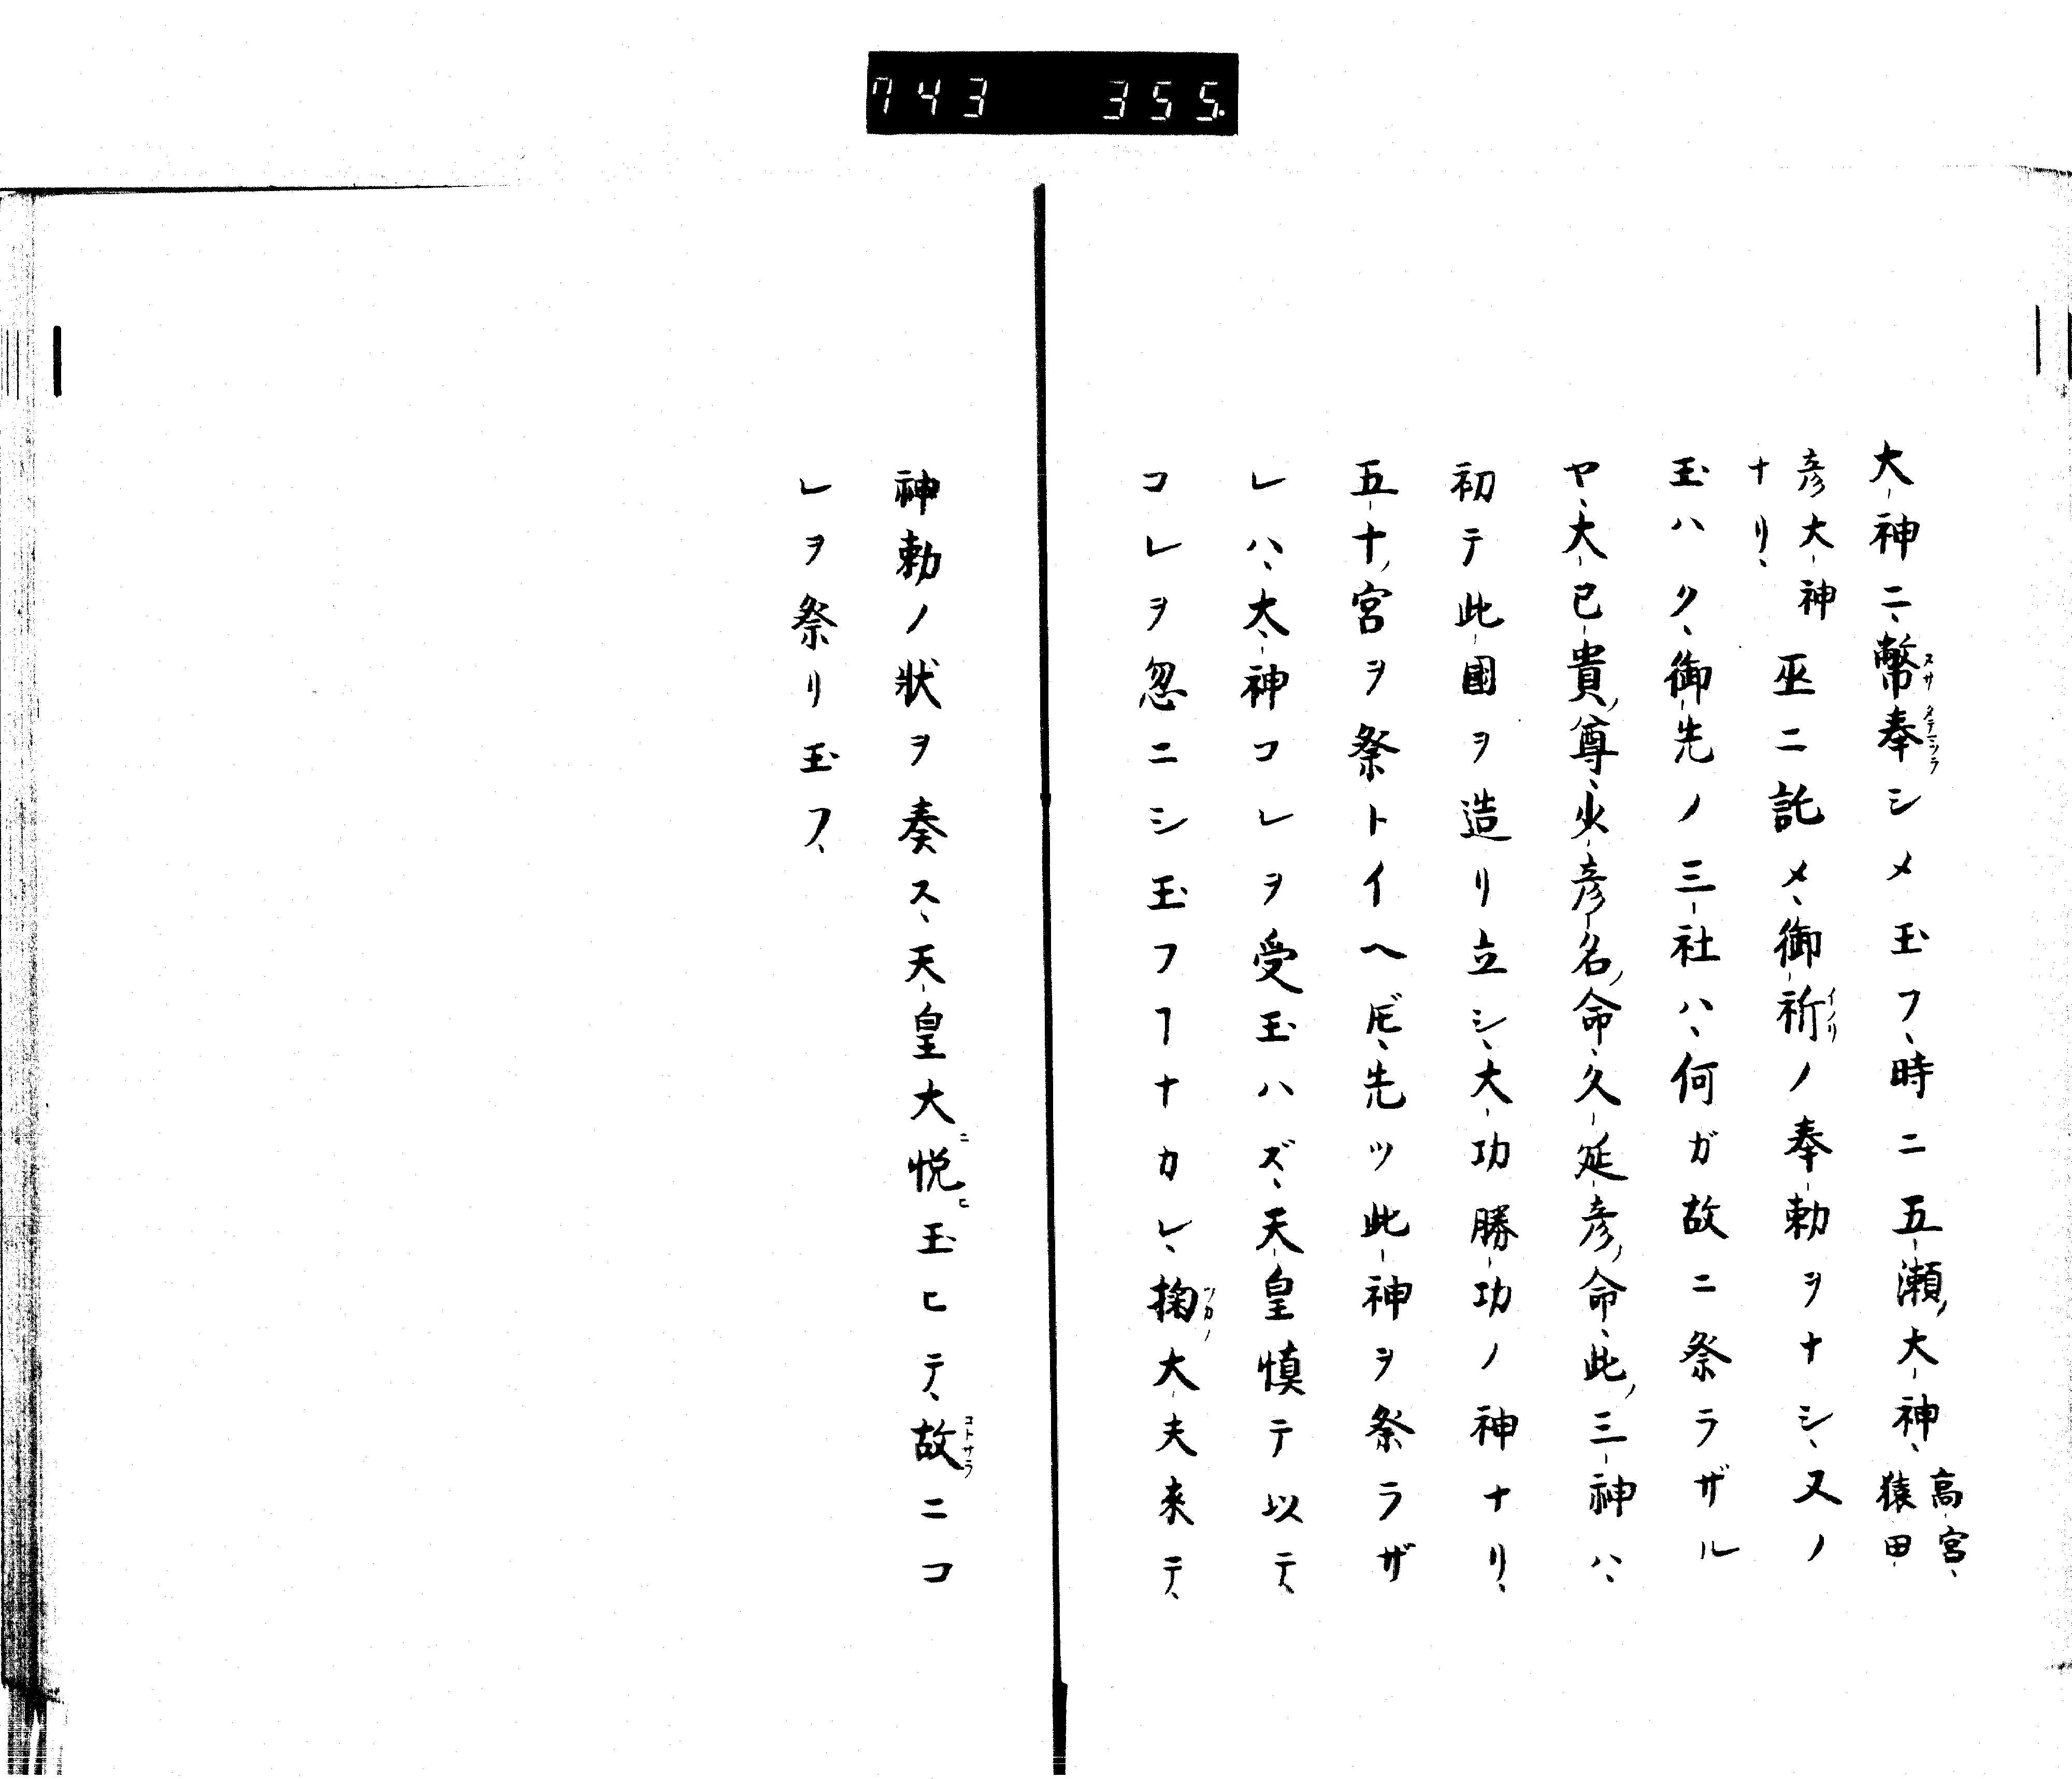 743 355.
大神ニ、幣奉シメ玉フ、時ニ五瀬ノ大神、高宮、猿田
彦大神ナリ、巫ニ託メ、御祈ノ奉勅ヲナシ、又ノ
玉ハク、御先ノ三社ハ、何ガ故ニ祭ラザル
ヤ、大已貴ノ尊、少彦名ノ命、久延彦ノ命、此ノ三神ハ、
初テ此國ヲ造リ立シ、大功勝功ノ神ナリ、
五十ノ宮ヲ祭トイヘ𪜈、先ツ此神ヲ祭ラザ
レハ、大神コレヲ受玉ハズ、天皇慎テ以テ、
コレヲ忽ニシ玉フヿナカレ、掬大夫来テ、
神勅ノ状ヲ奏ス、天皇大ニ悦ヒ玉ヒテ、故ニコ
レヲ祭リ玉フ、